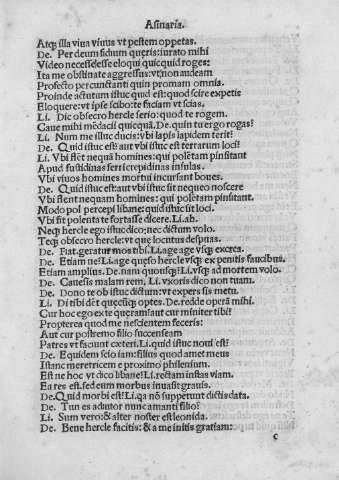 Asinaria.
Atq; illa viua viuus vt pestem oppetas.
De. Per deum fidium queris: iurato mihi
Video necesse esse eloqui quicquid roges:
Ita me obstinate aggressus: vt non audeam
Profecto percunctanti quin promam omnia.
Proinde actutum istuc quid est: quod scire expetis
Eloquere: vt ipse scibo: te faciam vt scias.
Li. Dic obsecro hercle serio: quod te rogem.
Caue mihi mēdacii quicquā. De. quin tu ergo rogas?
Li. Num me illuc ducis: vbi lapis lapidem terit?
De. Quid istuc est? aut vbi istuc est terrarum loci?
Li. Vbi flent nequā homines: qui polētam pinsitant
Apud fustidinas ferricrepidinas insulas.
Vbi viuos homines mortui incursant boues.
De. Quid istuc est: aut vbi istuc sit nequeo noscere
Vbi flent nequam homines: qui polētam pinsitant.
Modo pol percepi libane: quid istuc sit loci.
Vbi fit polenta te fortasse dicere. Li. ah.
Neq; hercle ego istuc dico: nec dictum volo.
Teq; obsecro hercle: vt que locutus despuas.
De. Fiat. geratur mos tibi. Li. age age vsq; excrea.
De. Etiam ne? Li. age queso hercle vsq; ex penitis faucibus.
Etiam amplius. De. nam quousq;? Li. vsq; ad mortem volo.
De. Cauesis malam rem, Li. vxoris dico non tuam.
De. Dono te ob istuc dictum: vt expers sis metu.
Li. Di tibi dēt quecūq; optes. De. redde operā mihi.
Cur hoc ego ex te queram? aut cur miniter tibi?
Propterea quod me nescientem feceris:
Aut cur postremo filio succenseam
Patres vt faciunt cæteri. Li. quid istuc noui est?
De. Equidem scio iam: filius quod amet meus
Istanc meretricem e proximo philenium.
Est ne hoc vt dico libane? Li. rectam instas viam.
Ea res est. sed eum morbus inuasit grauis.
De. Quid morbi est? Li. qa nō suppetunt dictis data.
De. Tun es adiutor nunc amanti filio?
Li. Sum vero: & alter noster est leonida.
De. Bene hercle facitis: & a me initis gratiam:
c